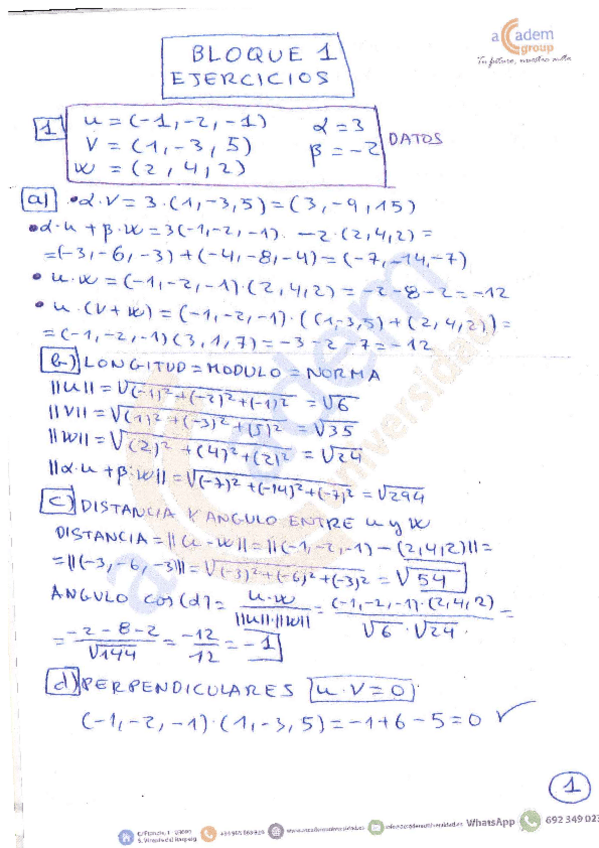 aCadem
group
Tu futuro, nuestra meta
BLOQUE 1
EJERCICIOS
1 u = (-1, -2, -1) α = 3
V = (1, -3, 5) β = -2 DATOS
w = (2, 4, 2)
a) • α·V = 3·(1, -3, 5) = (3, -9, 15)
• α·u + β·w = 3(-1, -2, -1) - 2·(2, 4, 2) =
= (-3, -6, -3) + (-4, -8, -4) = (-7, -14, -7)
• u·w = (-1, -2, -1)·(2, 4, 2) = -2 - 8 - 2 = -12
• u·(V + w) = (-1, -2, -1)·((1, -3, 5) + (2, 4, 2)) =
= (-1, -2, -1)(3, 1, 7) = -3 - 2 - 7 = -12
b) LONGITUD = MODULO = NORMA
||u|| = √(-1)² + (-2)² + (-1)² = √6
||V|| = √(1)² + (-3)² + (5)² = √35
||w|| = √(2)² + (4)² + (2)² = √24
||α·u + β·w|| = √(-7)² + (-14)² + (-7)² = √294
c) DISTANCIA Y ANGULO ENTRE u y w
DISTANCIA = ||u - w|| = ||(-1, -2, -1) - (2, 4, 2)|| =
= ||(-3, -6, -3)|| = √(-3)² + (-6)² + (-3)² = √54
ANGULO cos(α) = u·w / ||u||·||w|| = (-1, -2, -1)·(2, 4, 2) / √6·√24 =
= -2 - 8 - 2 / √144 = -12 / 12 = -1
d) PERPENDICULARES u·V = 0
(-1, -2, -1)·(1, -3, 5) = -1 + 6 - 5 = 0 ✓
1
academ universidad
WhatsApp 692 349 023